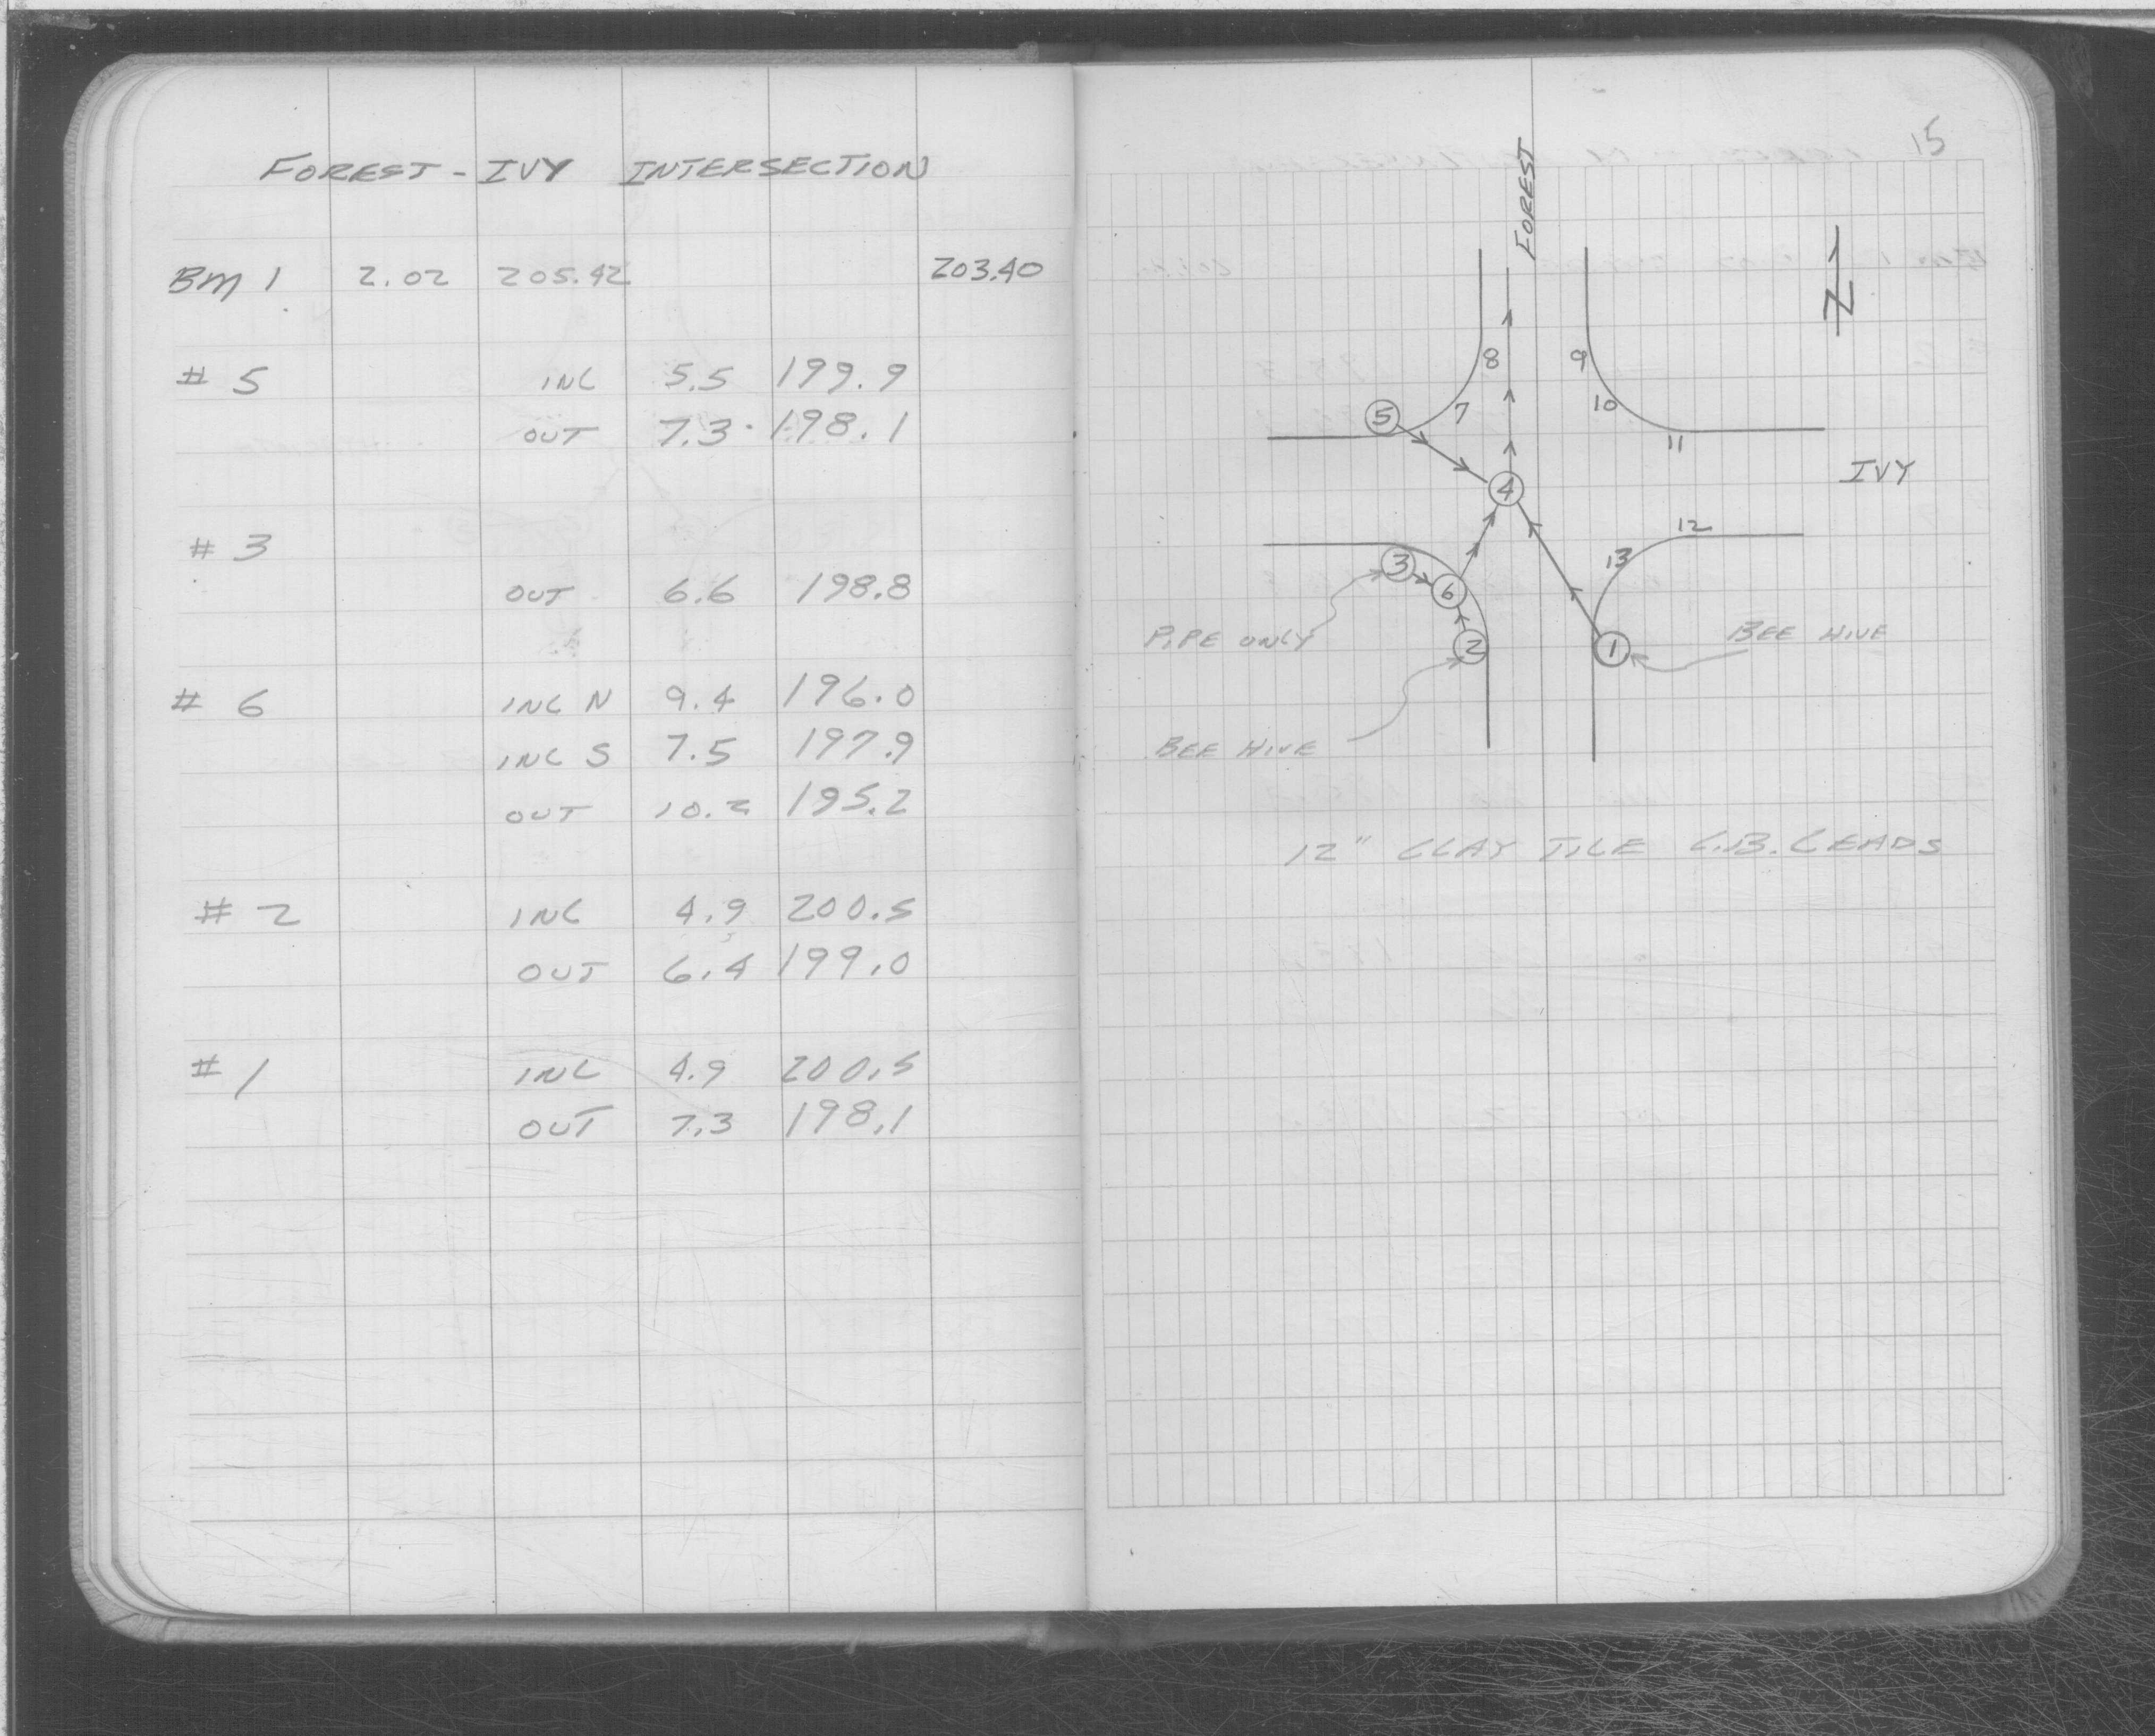 FOREST - IVY INTERSECTION
BM 1 2.02 205.42 203.40
# 5 INC 5.5 199.9
OUT 7.3 198.1
# 3
OUT 6.6 198.8
# 6 INC N 9.4 196.0
INC S 7.5 197.9
OUT 10.2 195.2
# 2 INC 4.9 200.5
OUT 6.4 199.0
# 1 INC 4.9 200.5
OUT 7.3 198.1
15
FOREST
N
8 9
5 7 10
11
IVY
4
12
3 13
6
PIPE ONLY 2 1 BEE HIVE
BEE HIVE
12" CLAY TILE C.B. LEADS